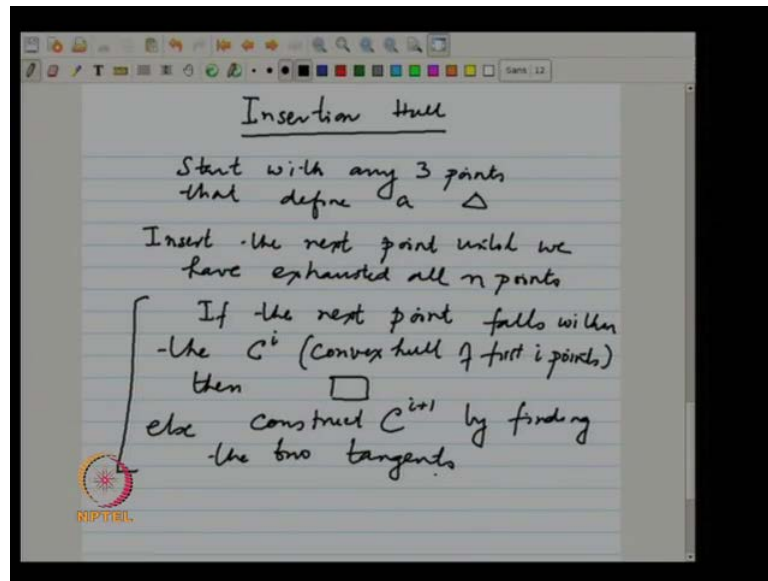 T Sans 12
Insertion Hull
Start with any 3 points
that define a △
Insert the next point until we
have exhausted all n points
If the next point falls within
the Cⁱ (convex hull of first i points)
then □
else construct Cⁱ⁺¹ by finding
the two tangents
NPTEL